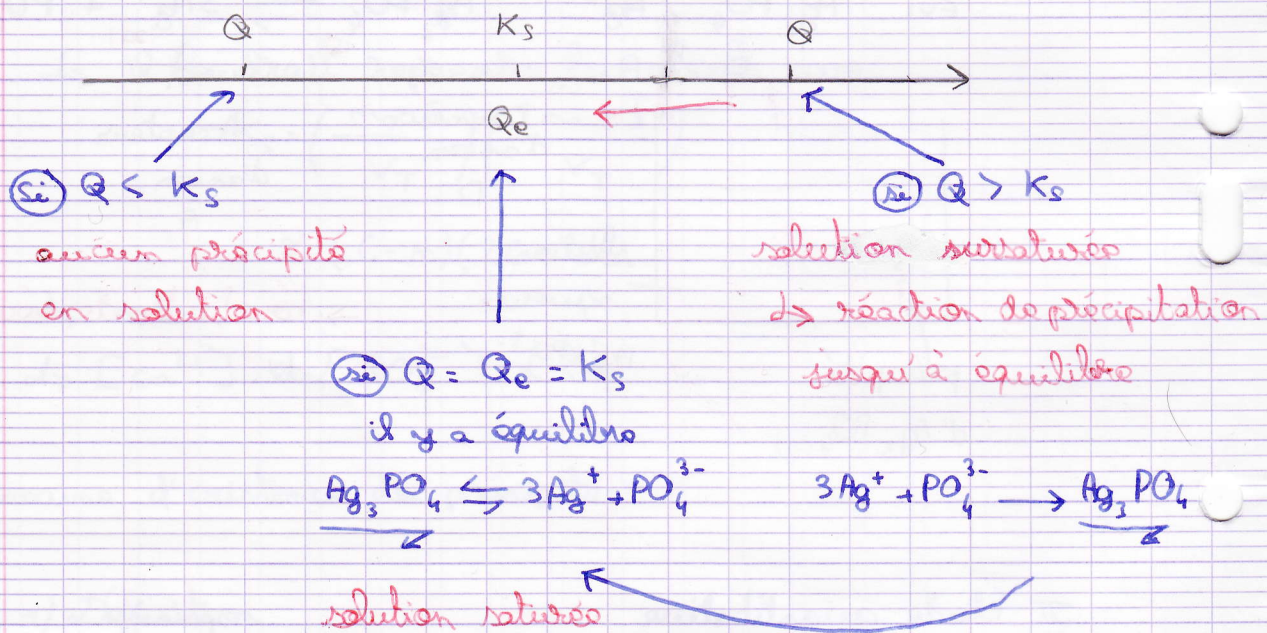 Q Ks Q
Qe
si Q < Ks
si Q > Ks
aucun précipité
en solution
solution sursaturée
↳ réaction de précipitation
jusqu'à équilibre
si Q = Qe = Ks
il y a équilibre
Ag₃PO₄ ⇌ 3Ag⁺ + PO₄³⁻
3Ag⁺ + PO₄³⁻ → Ag₃PO₄
solution saturée